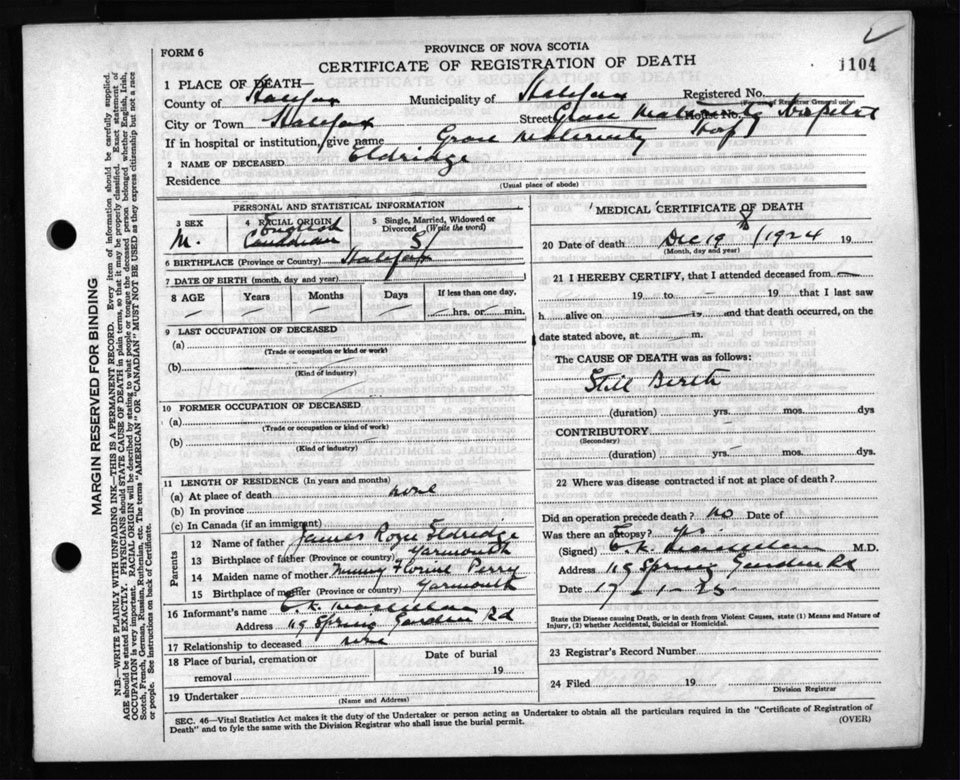 FORM 6
PROVINCE OF NOVA SCOTIA
CERTIFICATE OF REGISTRATION OF DEATH
1104
1 PLACE OF DEATH—
County of Halifax Municipality of Halifax Registered No.
(For use of Registrar General only)
City or Town Halifax Street Grace Maternity Hospital House No.
If in hospital or institution, give name Grace Maternity Hosp
2 NAME OF DECEASED Eldridge
Residence
(Usual place of abode)
PERSONAL AND STATISTICAL INFORMATION
3 SEX
M.
4 RACIAL ORIGIN
English
Canadian
5 Single, Married, Widowed or Divorced (Write the word)
S
6 BIRTHPLACE (Province or Country) Halifax
7 DATE OF BIRTH (month, day and year)
8 AGE Years Months Days If less than one day,
— — — — hrs. or — min.
9 LAST OCCUPATION OF DECEASED
(a)
(Trade or occupation or kind or work)
(b)
(Kind of industry)
10 FORMER OCCUPATION OF DECEASED
(a)
(Trade or occupation or kind of work)
(b)
(Kind of industry)
11 LENGTH OF RESIDENCE (In years and months)
(a) At place of death none
(b) In province
(c) In Canada (if an immigrant)
Parents
12 Name of father James Eldridge
13 Birthplace of father (Province or country) Yarmouth
14 Maiden name of mother Perry
15 Birthplace of mother (Province or country) Yarmouth
16 Informant's name
Address 119 Spring Garden Rd
17 Relationship to deceased none
18 Place of burial, cremation or removal Date of burial
19
19 Undertaker
(Name and Address)
MEDICAL CERTIFICATE OF DEATH
20 Date of death Dec 19 / 1924 19
(Month, day and year)
21 I HEREBY CERTIFY, that I attended deceased from —
19 to — 19 that I last saw
h alive on — 19 and that death occurred, on the
date stated above, at m.
The CAUSE OF DEATH was as follows:
Still Birth
(duration) yrs. mos. dys
CONTRIBUTORY
(Secondary)
(duration) yrs. mos. dys
22 Where was disease contracted if not at place of death?
Did an operation precede death? no Date of
Was there an autopsy? yes.
(Signed) M.D.
Address 119 Spring Garden Rd
Date 17-1-25
State the Disease causing Death, or in death from Violent Causes, state (1) Means and Nature of Injury, (2) whether Accidental, Suicidal or Homicidal.
23 Registrar's Record Number
24 Filed 19
Division Registrar
SEC. 46—Vital Statistics Act makes it the duty of the Undertaker or person acting as Undertaker to obtain all the particulars required in the "Certificate of Registration of
Death" and to fyle the same with the Division Registrar who shall issue the burial permit.
(OVER)
MARGIN RESERVED FOR BINDING
N.B.—WRITE PLAINLY WITH UNFADING INK—THIS IS A PERMANENT RECORD. Every item of information should be carefully supplied.
AGE should be stated EXACTLY. PHYSICIANS should STATE CAUSE OF DEATH in plain terms, so that it may be properly classified. Exact statement of
OCCUPATION is very important. RACIAL ORIGIN will be described by stating to what people or tongue the deceased person belonged whether English, Irish,
Scotch, French, German, Russian, Ruthenian, etc. The terms "AMERICAN" OR "CANADIAN" MUST NOT BE USED as they express citizenship but not a race
or people. See instructions on back of Certificate.